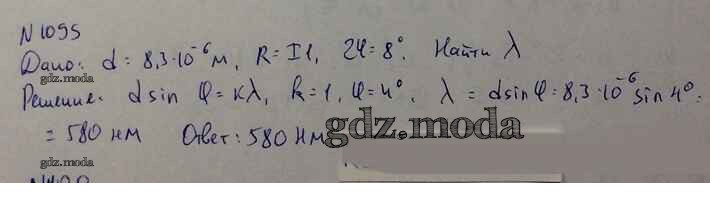 N 1095
Дано: d = 8,3·10⁻⁶ м, R = I1, 2φ = 8°. Найти λ
gdz.moda
Решение: d sin φ = кλ, k = 1, φ = 4°, λ = d sin φ = 8,3·10⁻⁶ sin 4° =
= 580 нм Ответ: 580 нм
gdz.moda
gdz.moda